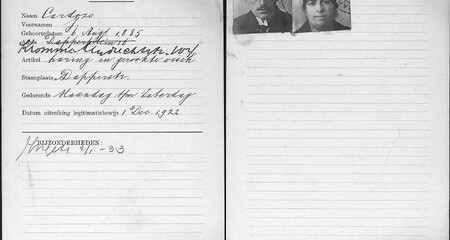 Naam Cardozo
Voornamen
Geboortedatum 6 Aug. 1885
Dapperplein 10
Artikel haring en gerookte visch
Staanplaats Dapperstr.
Gedurende Maandag t/m Zaterdag
Datum uitreiking legitimatiebewijs 1 Dec. 1922
BIJZONDERHEDEN:
2/1 - 33